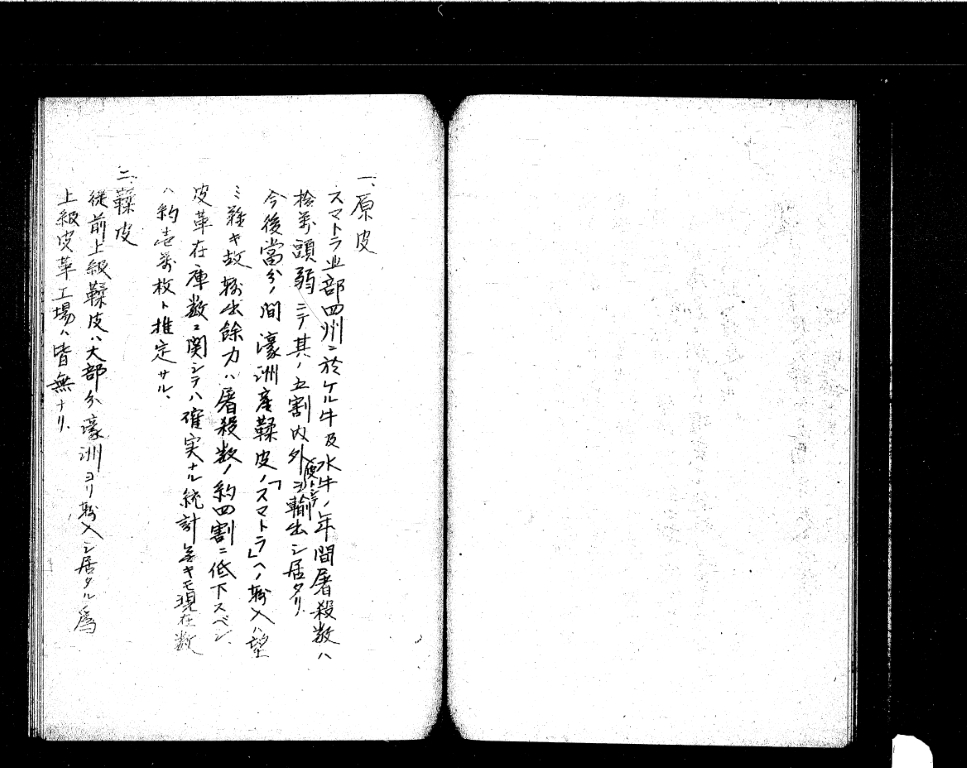 一、原皮
スマトラ北部四州ニ於ケル牛及水牛ノ年間屠殺数ハ
拾萬頭弱ニテ其ノ五割内外ヲ輸出シ居タリ
今後當分ノ間濠洲産鞣皮ノ「スマトラ」ヘノ輸入ハ望
ミ難キ故輸出餘力ハ屠殺数ノ約四割ニ低下スベシ、
皮革在庫数ニ関シテハ確実ナル統計無キモ現在数
ハ約壱萬枚ト推定サル、
二、鞣皮
従前上級鞣皮ハ大部分濠洲ヨリ輸入シ居タル為
上級皮革工場ハ皆無ナリ、